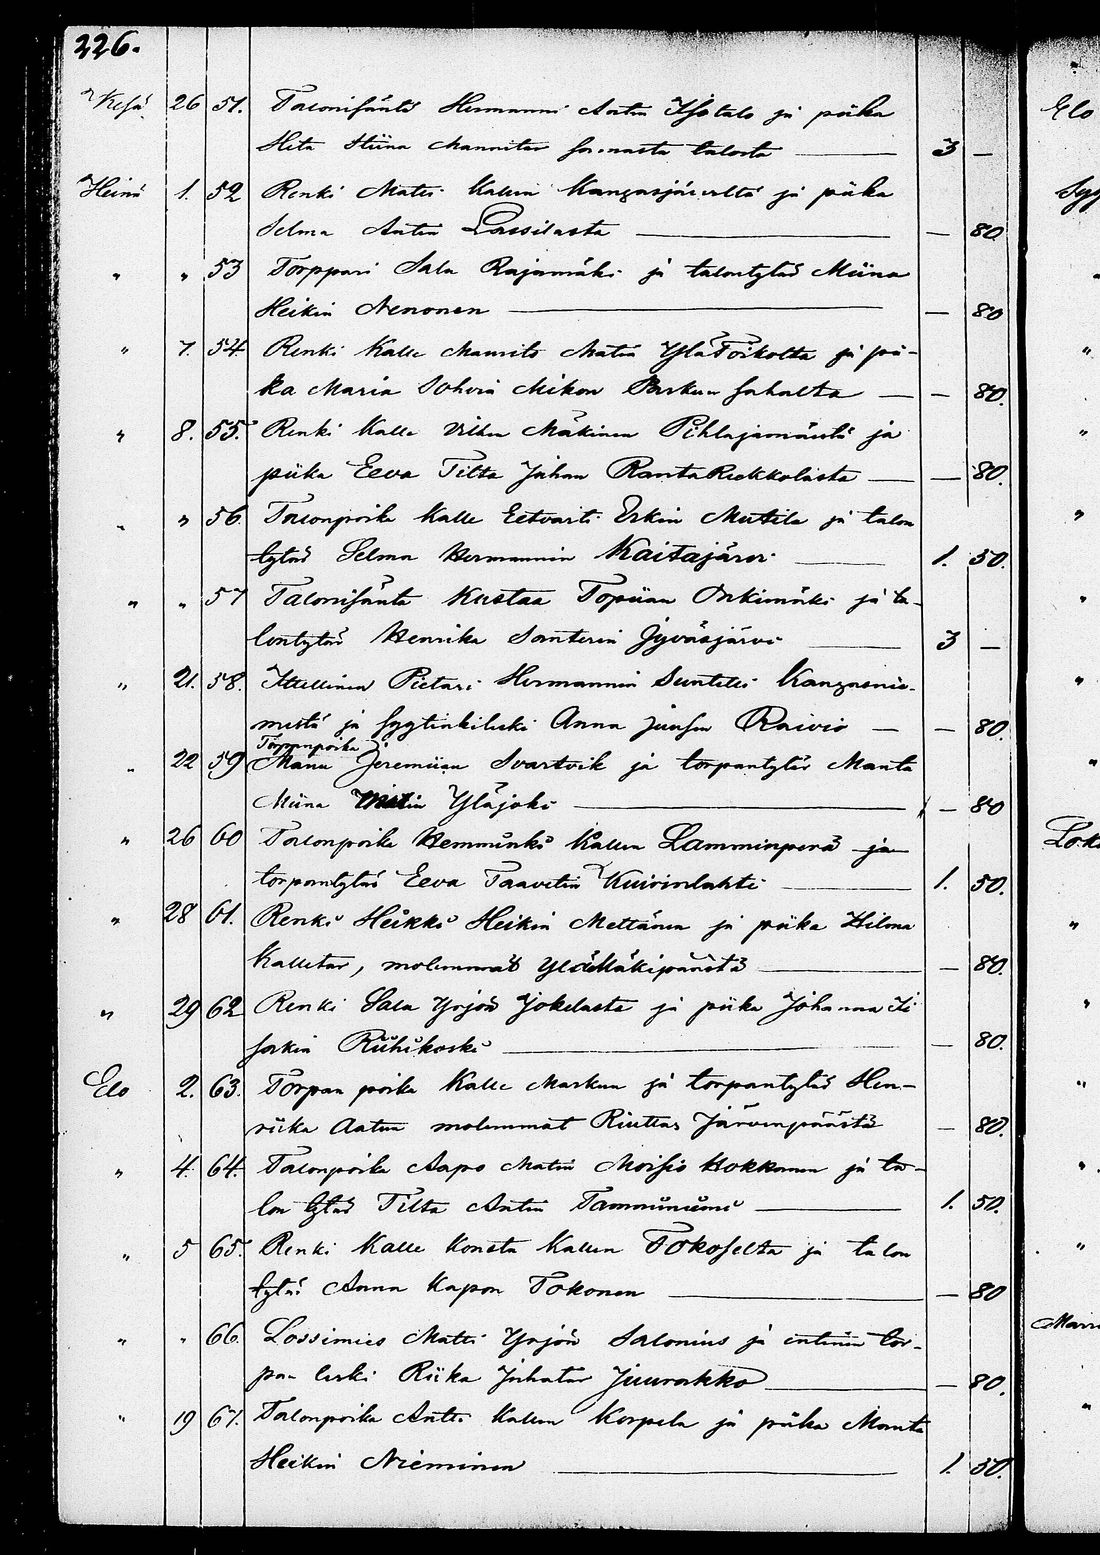 226.
Kesä 26 51. Talonisäntä Hermanni Antin Isotalo ja piika
Hita Stiina Mannitar samasta talosta 3 —
Heinä 1. 52 Renki Matti Kallen Kangasjärveltä ja piika
Selma Antin Lassilasta — 80
" " 53 Torppari Salu Rajamäki ja talontytär Miina
Heikin Nenonen — 80
" 7. 54 Renki Kalle Mauritz Matin YläToikolta ja pii-
ka Maria Sohvia Mikon sahalta — 80.
" 8. 55. Renki Kalle Vilken Mäkinen Pihlajamäestä ja
piika Eeva Tilta Juhan RantaRuokkolasta — 80.
" " 56. Talonpoika Kalle Eetvarti Erkin Mutila ja talon
tytär Selma Hermannin Kaitajärvi 1. 50.
" " 57 Talonisäntä Kustaa Topiian Onkimäki ja ta-
lontytär Henrika Santerin Jyväsjärvi 3 —
" 21. 58. Itsellinen Pietari Hermannin Kangasnie-
mestä ja syytinkileski Anna Juusen Raivio — 80.
" 22 59 Torpanpoika
Manu Jeremiian Svartvik ja torpantytär Manta
Miina Matin Yläjoki — 80
" 26 60 Talonpoika Hemminki Kallen Lamminperä ja
torpantytär Eeva Taavetin Kuivinlahti 1. 50.
" 28 61. Renki Heikki Heikin Mettänen ja piika Hilma
Kalletar, molemmat YläMäkipäästä — 80.
" 29 62 Renki Salu Yrjön Jokelasta ja piika Johanna Ii
sakin Riihikoski — 80.
Elo 2. 63. Torpan poika Kalle Markun ja torpantytär Hen-
riika Aatun molemmat Riuttas Järvenpäästä — 80.
" 4. 64. Talonpoika Aapo Matin Moisio Kokkonen ja ta-
lon tytär Tilta Antin Tamminiemi 1. 50.
" 5 65. Renki Kalle Konsta Kallen Tokoselta ja talon
tytär Anna Kapon Tokonen — 80
" " 66. Lossimies Matti Yrjön Salonius ja entinen tor-
pan leski Riika Juhatar Juurakko — 80.
" 19 67. Talonpoika Antti Kallen Korpela ja piika Manta
Heikin Nieminen 1. 50.
Elo